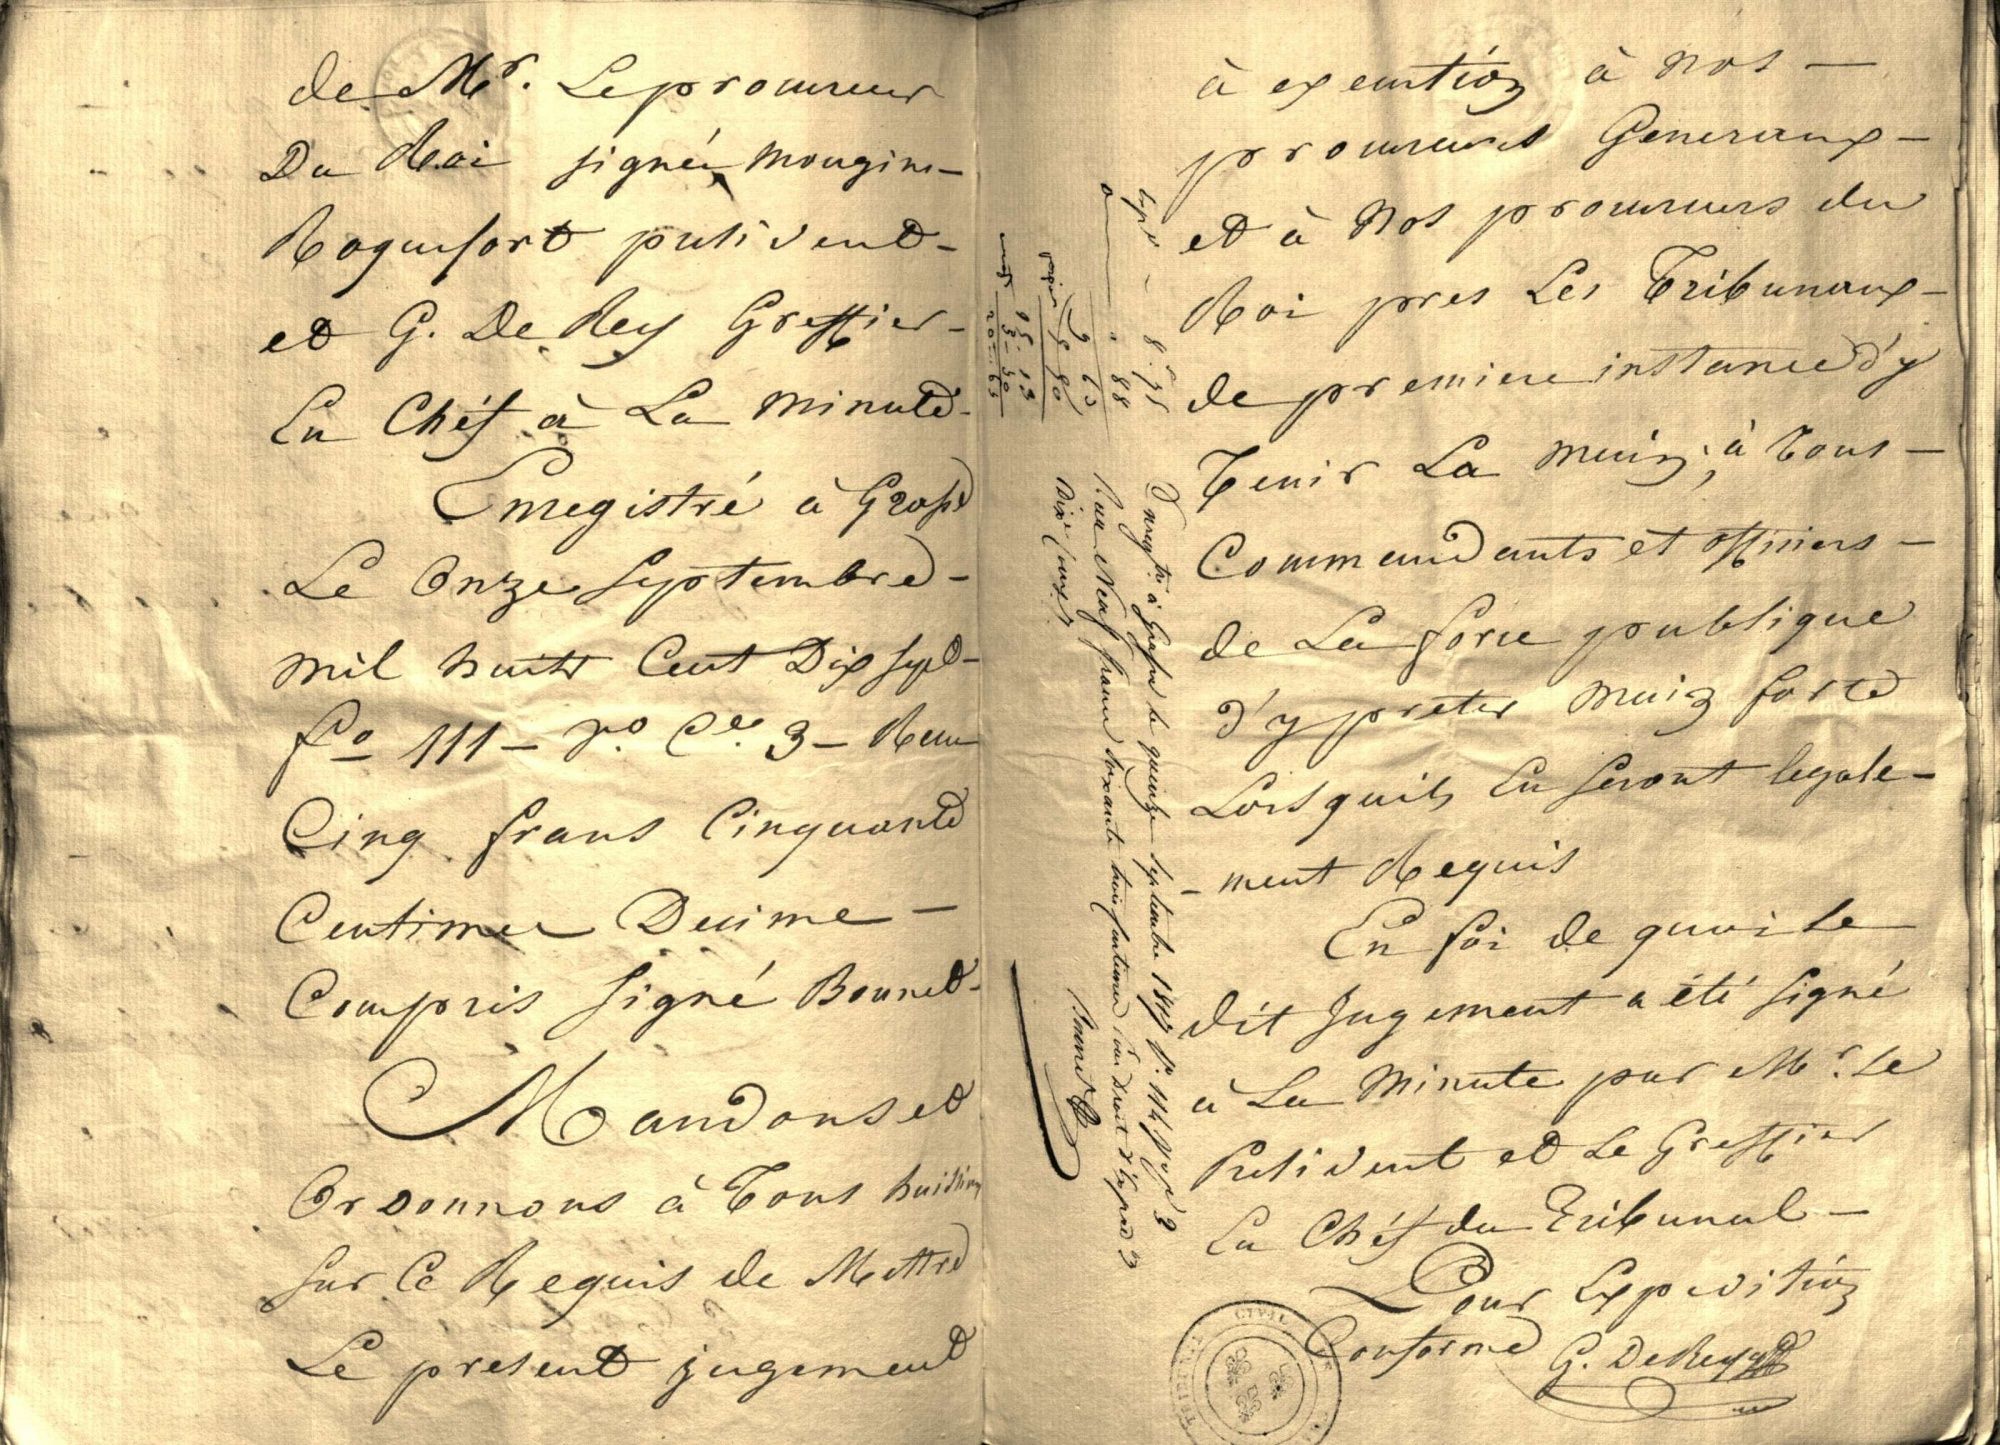 de Mr. Le procureur
Du Roi signés, Mougins-
Roquefort président-
et G. De Rey Greffier-
En Chéf à La minute-
Enregistré à Grasse
Le Onze Septembre-
mil huit Cent Dix sept-
fo 111 - vo. Ce. 3 - Recu
Cinq frans Cinquante
Centimes Decime -
Compris signé Bonnet-
Mandons et
Ordonnons à Tous huissiers
sur Ce Requis de Mettre
Le présent jugement
expo - 8. 75
88
9 63
papier 5 50
15 13
5 - 50
20 - 63
Enregtré à Grasse le quinze septembre 1817 fo. 114 Vo Ce 2
Reçu Neuf francs soixante trois centimes
Dixe Compris Bonnet
à execution à Nos -
procureurs Generaux -
et à Nos procureurs du
Roi pres Les Tribunaux -
de premiere instance d'y
Tenir La main; à Tous -
Commandants et officiers -
de La force publique
d'y preter Main forte
Lorsquils En seront legale -
- ment Requis
En foi de quoi Le
dit Jugement a été signé
à La Minute par Mr. Le
Président et Le Greffier
En Chéf du Tribunal -
Pour Expedition
Conforme G. DeRey
TRIBUNAL CIVIL